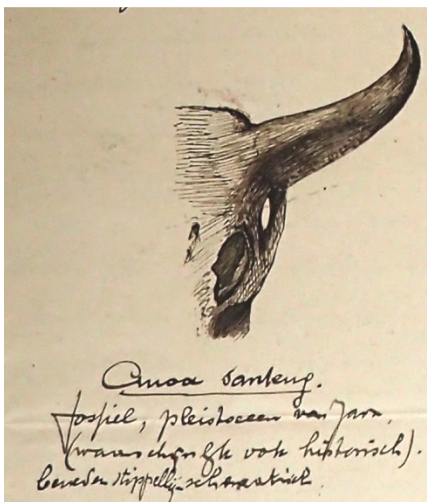 Anoa santeng.
fossiel, pleistoceen van Java,
(waarschijnlijk ook historisch).
beneden stippellijn